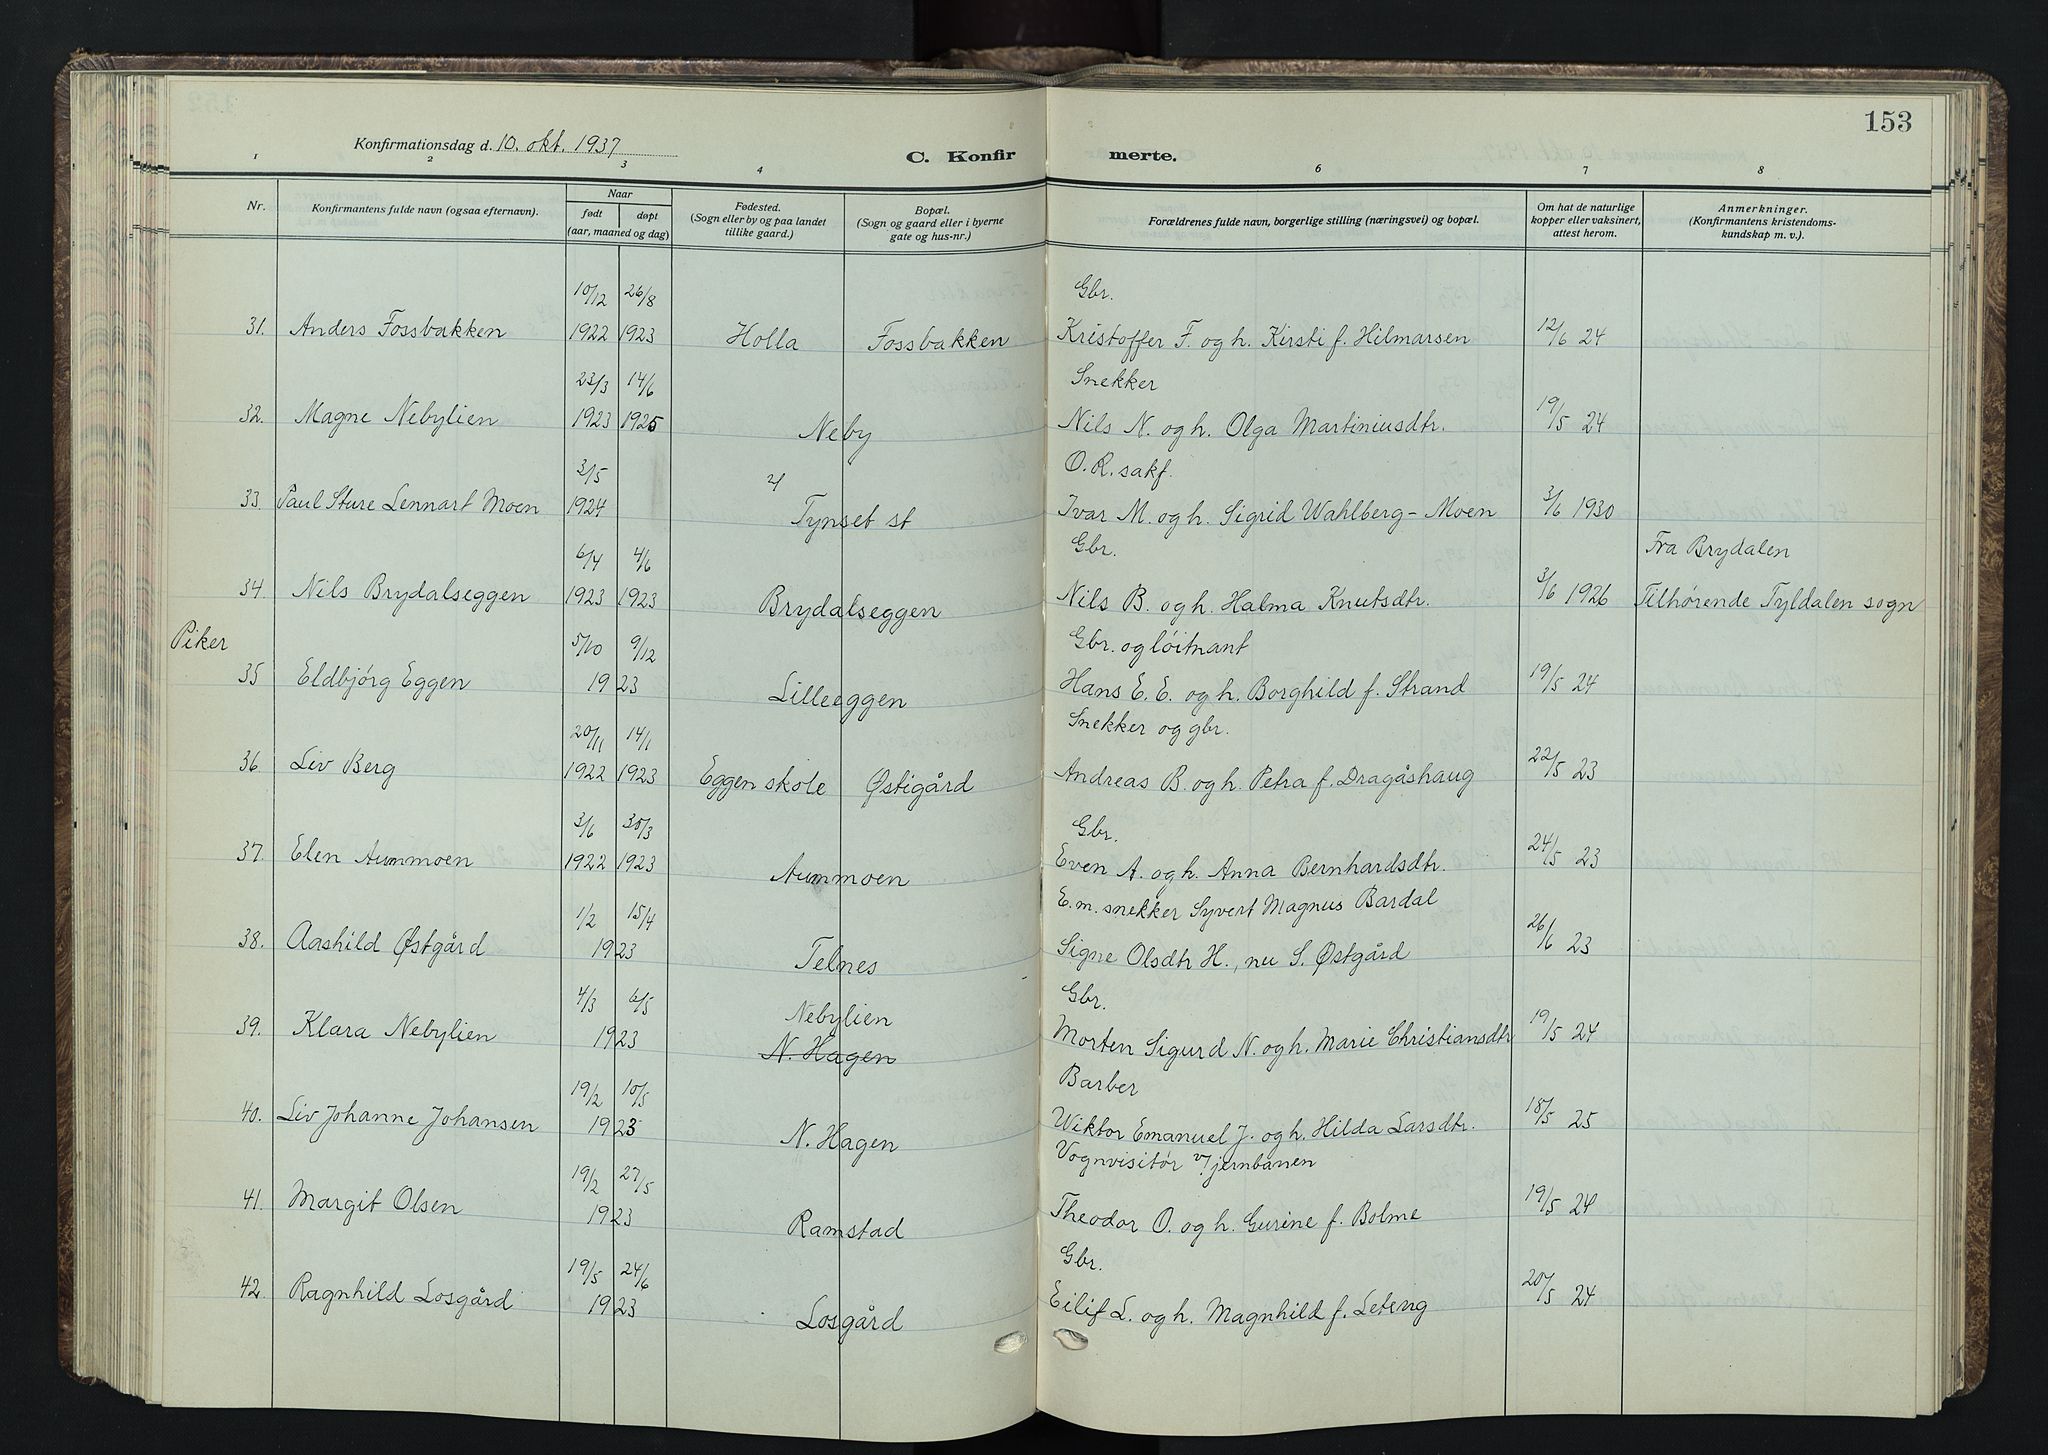 153
Konfirmationsdag d. 10. okt. 1937
C. Konfirmerte.
1 2 3 4 6 7 8
Nr.
Konfirmantens fulde navn (ogsaa efternavn).
Naar
født
døpt
(aar, maaned og dag)
Fødested.
(Sogn eller by og paa landet
tillike gaard.)
Bopæl.
(Sogn og gaard eller i byerne
gate og hus-nr.)
Forældrenes fulde navn, borgerlige stilling (næringsvei) og bopæl.
Om hat de naturlige
kopper eller vaksinert,
attest herom.
Anmerkninger.
(Konfirmantens kristendoms-
kundskap m. v.).
10/12 26/8 Gbr.
31. Anders Fossbakken 1922 1923 Holla Fossbakken Kristoffer F. og h. Kirsti f. Hilmarsen 12/6 24
23/3 14/6 Snekker
32. Magne Nebylien 1923 1925 Neby Nils N. og h. Olga Martiniusdtr. 19/5 24
3/5 O.R. sakf.
33. Paul Sture Lennart Moen 1924 Tynset st Ivar M. og h. Sigrid Wahlberg-Moen 3/6 1930
6/4 4/6 Gbr. Fra Brydalen
34. Nils Brydalseggen 1923 1923 Brydalseggen Nils B. og h. Halma Knutsdtr. 3/6 1926 Tilhørende Tyldalen sogn
Piker 5/10 9/12 Gbr. og løitnant
35 Eldbjörg Eggen 1923 Lilleeggen Hans E. E. og h. Borghild f. Strand 19/5 24
20/11 14/1 Snekker og gbr.
36. Liv Berg 1922 1923 Eggen skole Østigård Andreas B. og h. Petra f. Dragåshaug 22/5 23
3/6 30/3 Gbr.
37. Elen Aummoen 1922 1923 Aummoen Even A. og h. Anna Bernhardsdtr. 24/5 23
1/2 15/4 E.m. snekker Syvert Magnus Bardal
38. Aashild Østgård 1923 Telnes Signe Olsdtr H., nu S. Østgård 26/6 23
4/3 6/5 Nebylien Gbr.
39. Klara Nebylien 1923 N. Hagen Morten Sigurd N. og h. Marie Christiansdtr 19/5 24
19/2 10/5 Barber
40. Liv Johanne Johansen 1923 N. Hagen Wiktor Emanuel J. og h. Hilda Larsdtr. 18/5 25
19/2 27/5 Vognvisitör v/jernbanen
41. Margit Olsen 1923 Ramstad Theodor O. og h. Gurine f. Bolme 19/5 24
19/5 24/6 Gbr.
42 Ragnhild Losgård 1923 Losgård Eilif L. og h. Magnhild f. Leteng 20/5 24